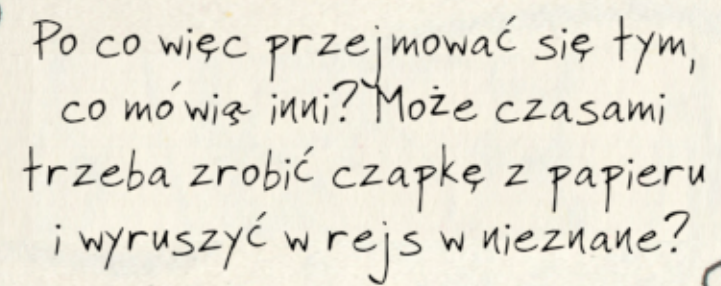 Po co więc przejmować się tym,
co mówią inni? Może czasami
trzeba zrobić czapkę z papieru
i wyruszyć w rejs w nieznane?